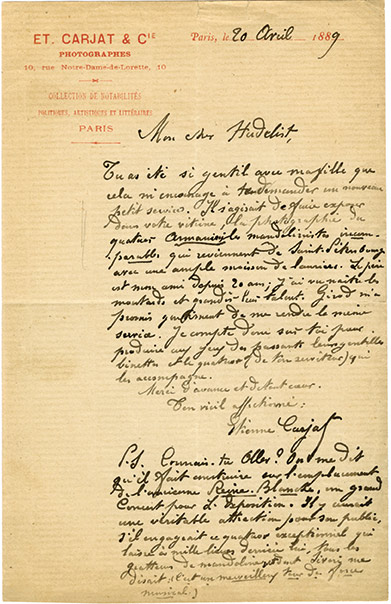 ET. CARJAT & CIE
PHOTOGRAPHES
10, rue Notre-Dame-de-Lorette, 10
COLLECTION DE NOTABILITÉS
POLITIQUES, ARTISTIQUES ET LITTÉRAIRES
PARIS
Paris, le 20 Avril 1889
Mon cher
Tu as été si gentil avec ma fille que
cela m'encourage à te demander un nouveau
petit service. Il s'agirait de faire exposer
dans votre vitrine, la photographie du
quatuor Armanini, les mandolinistes incom-
parables qui reviennent de Saint-Pétersbourg
avec une ample moisson de lauriers. Le père
est mon ami depuis 20 ans, j'ai vu naître les
moutards et grandir leur talent. m'a
promis gentiment de me rendre le même
service. Je compte donc sur toi pour
produire aux yeux des passants leurs gentilles
binettes et le quatrain (de ton serviteur) qui
les accompagne.
Merci d'avance et de tout cœur.
Ton vieil affectionné:
Etienne Carjat
P.S. Connais-tu Oller? On me dit
qu'il fait construire sur l'emplacement
de l'ancienne Reine Blanche, un grand
Concert pour l'Exposition. Il y aurait
une véritable attraction pour son public,
s'il engageait ce quatuor exceptionnel qui
laisse à mille lieues derrière lui, tous les
quatuors de mandolines dont me
disait (C'est un merveilleux tour de force
musical.)